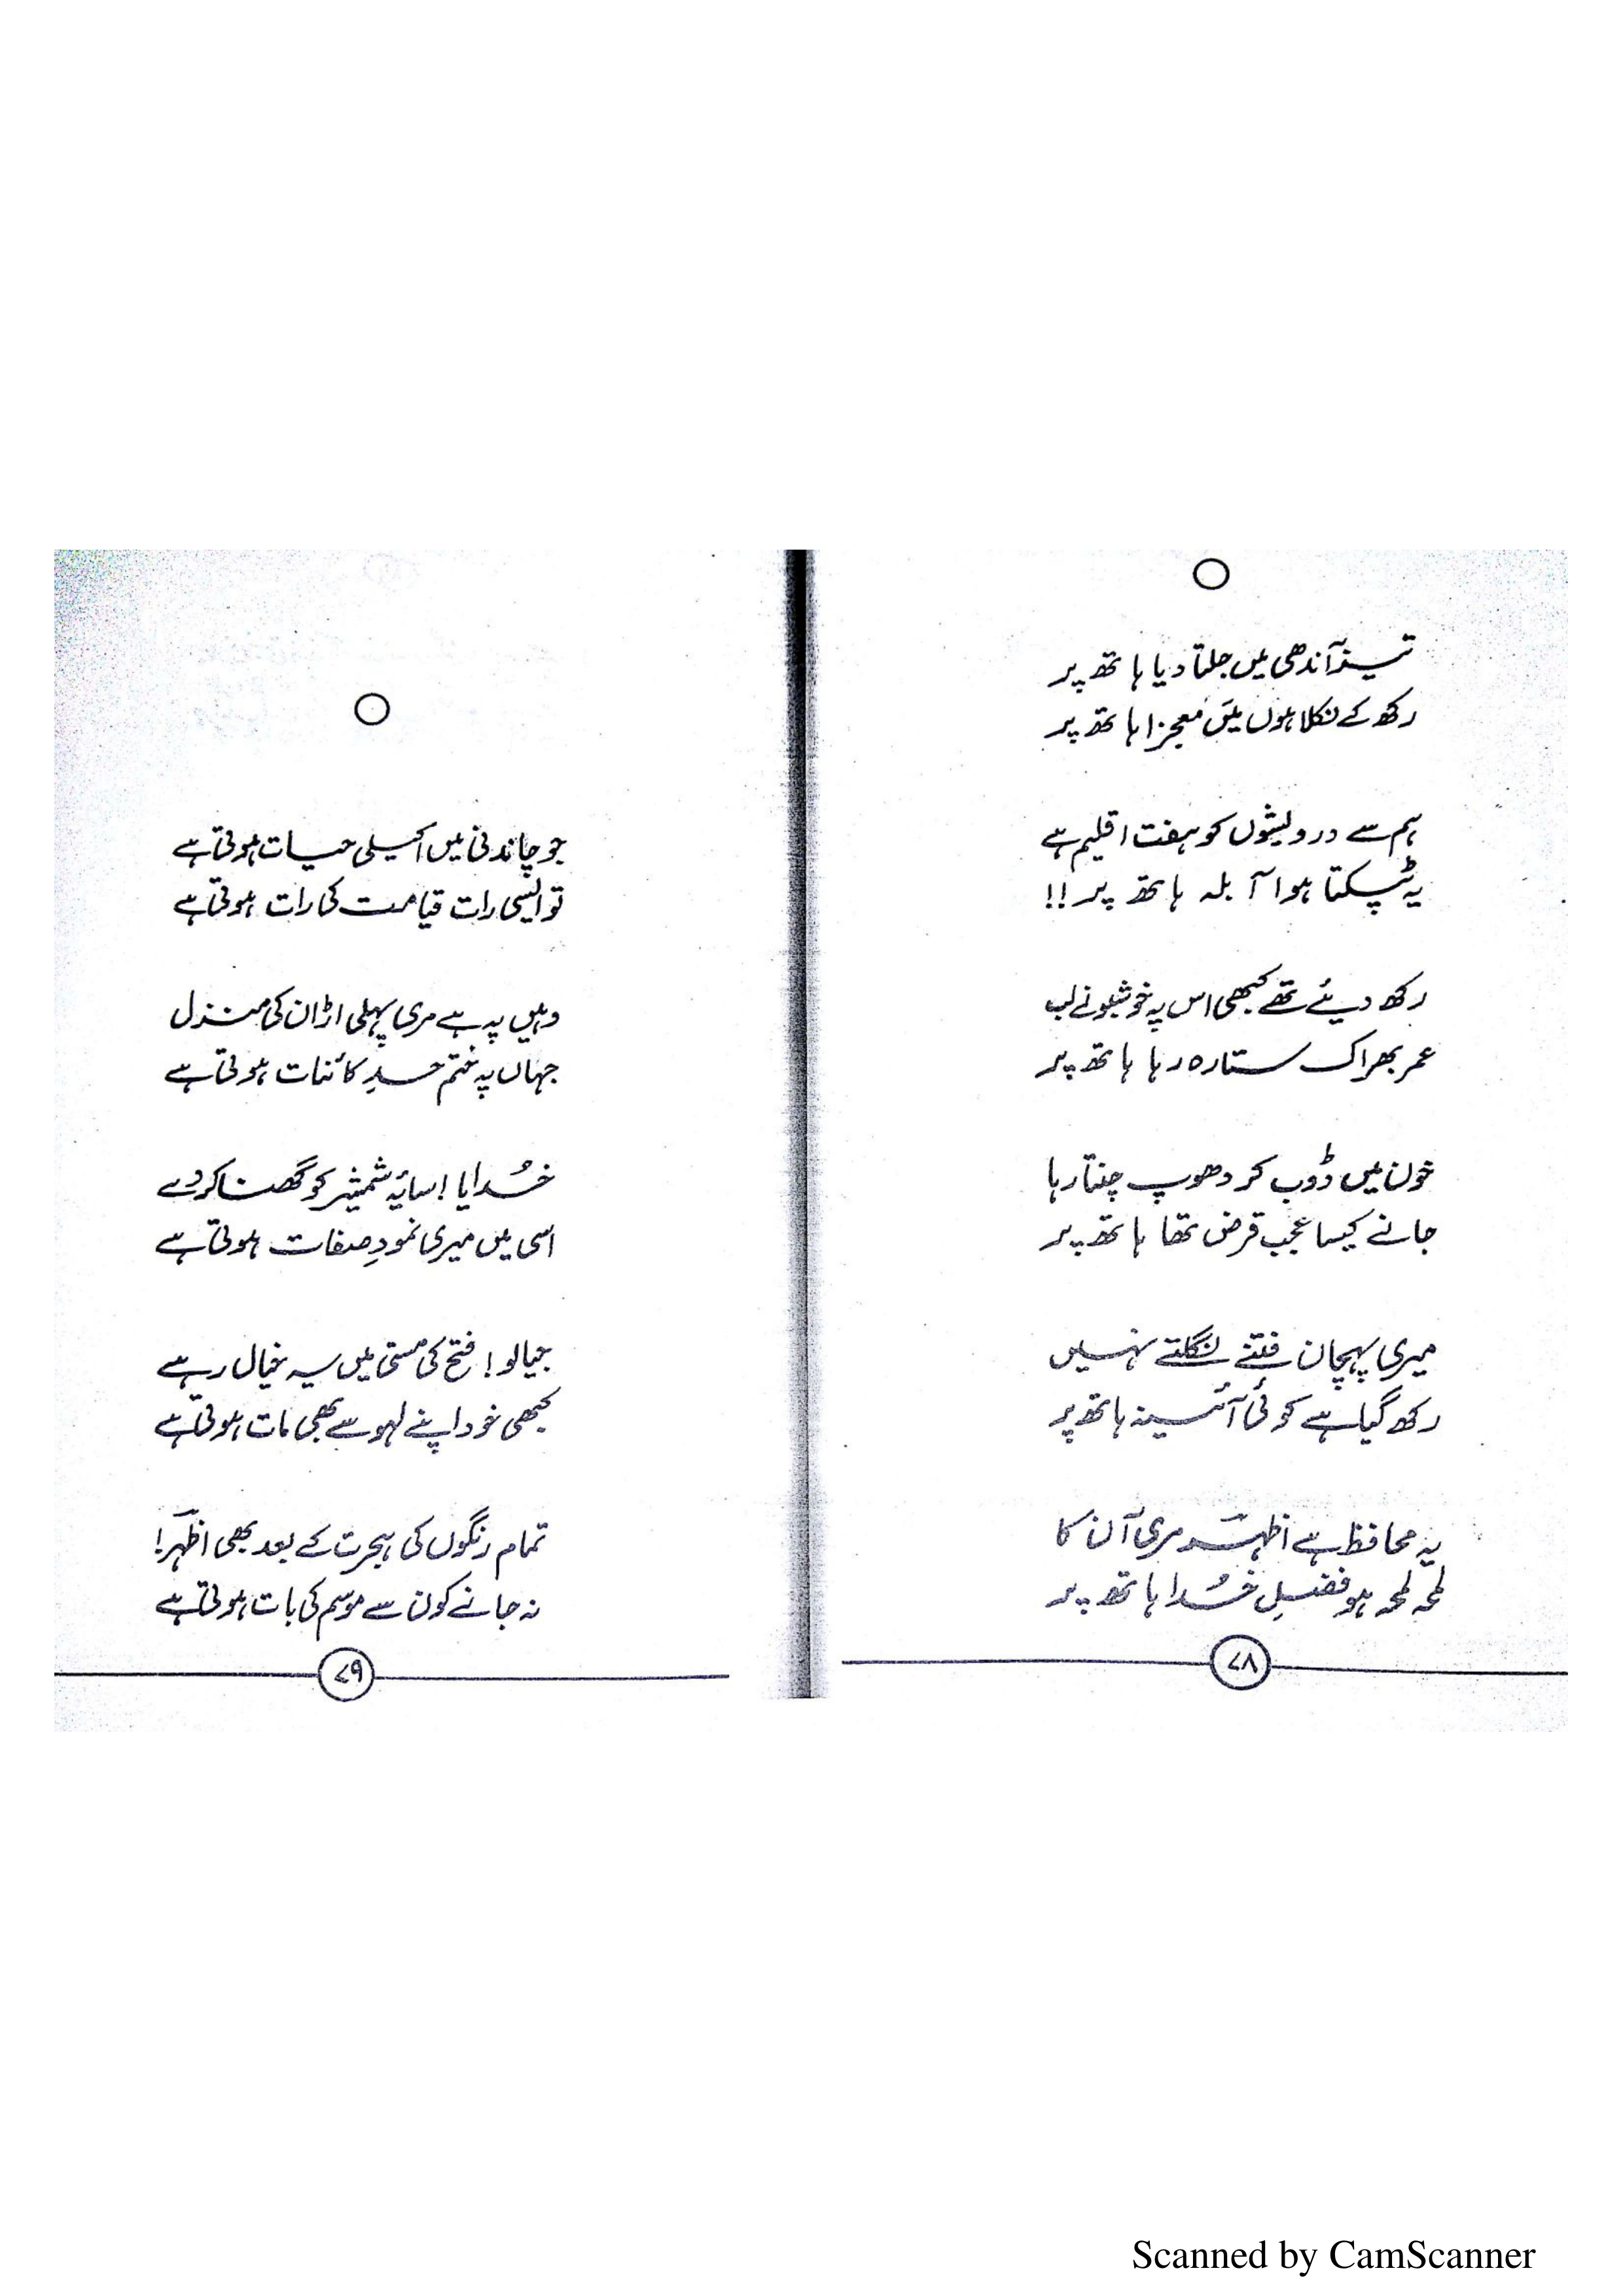 تیز آندھی میں جلتا دیا ہاتھ پر
رکھ کے نکلا ہوں میں معجزا ہاتھ پر
ہم سے درویشوں کو ہفت اقلیم ہے
یہ ٹپکتا ہوا آبلہ ہاتھ پر!!
رکھ دیئے تھے کبھی اس پہ خوشبو نے لب
عمر بھر اک ستارہ رہا ہاتھ پر
خون میں ڈوب کر دھوپ چنتا رہا
جانے کیسا عجب قرض تھا ہاتھ پر
میری پہچان فتنے نگلتے نہیں
رکھ گیا ہے کوئی آئینہ ہاتھ پر
یہ محافظ ہے اظہرؔ مری آن کا
لمحہ لمحہ ہو فضلِ خُدا ہاتھ پر
۷۸
جو چاندنی میں اکیلی حیات ہوتی ہے
تو ایسی رات قیامت کی رات ہوتی ہے
وہیں پہ ہے مری پہلی اڑان کی منزل
جہاں پہ ختم حدِ کائنات ہوتی ہے
خُدایا! سایۂ شمشیر کو گھنا کر دے
اسی میں میری نمودِ صفات ہوتی ہے
جیالو! فتح کی مستی میں یہ خیال رہے
کبھی خود اپنے لہو سے بھی مات ہوتی ہے
تمام رنگوں کی ہجرت کے بعد بھی اظہرؔ!
نہ جانے کون سے موسم کی بات ہوتی ہے
۷۹
Scanned by CamScanner